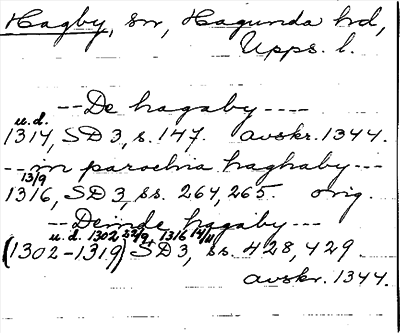 Hagby, sn, Hagunda hd,
Upps. l.
--De hagaby----
u.d.
1314, SD 3, s. 147. avskr. 1344.
--in parochia haghaby---
13/9
1316, SD 3, ss. 264, 265. orig.
--Deinde hagaby---
u.d. 1302 22/9, 1316 14/11
(1302-1319) SD 3, ss. 428, 429
avskr. 1344.